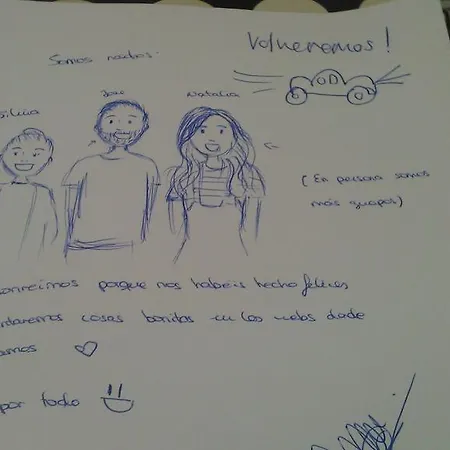 Volveremos!
Somos
Jose
Natalia
Silvia
(En persona somos
más guapos)
sonreimos porque nos habéis hecho felices
cosas bonitas en las webs dade
amos
por todo